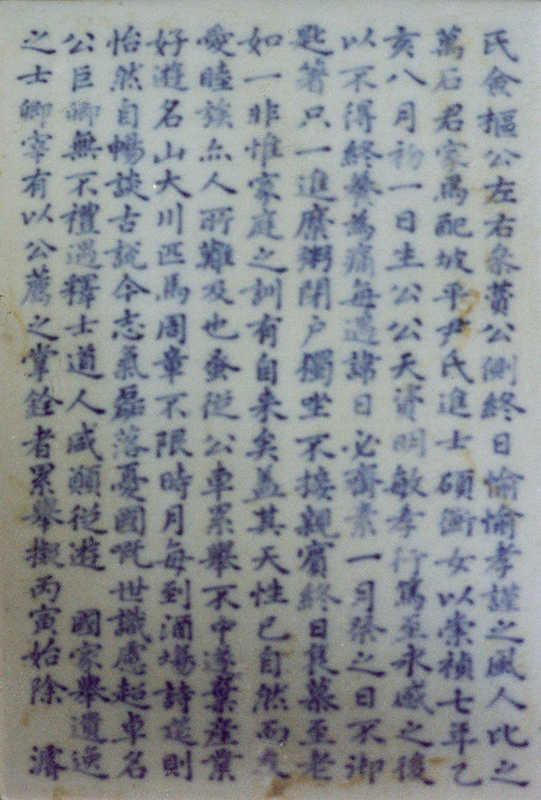 氏僉樞公左右粲公側終日愉愉孝謹之風人比之
萬石君家焉配坡平尹氏進士碩衝女以崇禎七年乙
亥八月初一日生公公天資明敏孝行篤至永感之後
以不得終養為痛每遇諱日必齋素一月祭之日不御
匙著只一進糜粥閉户獨坐不接親賓終日哀慕至老
如一非惟家庭之訓有自来矣盖其天性已自然而友
愛睦族亦人所難及也蚤從公車累擧不中遂棄產業
好遊名山大川匹馬周章不限時月每到酒場詩筵則
怡然自暢談古說今志氣磊落憂國慨世識慮超卓名
公巨卿無不禮遇釋士道人咸願從遊 國家擧遺逸
之士卿宰有以公薦之掌銓者累擧擬丙寅始除 濬